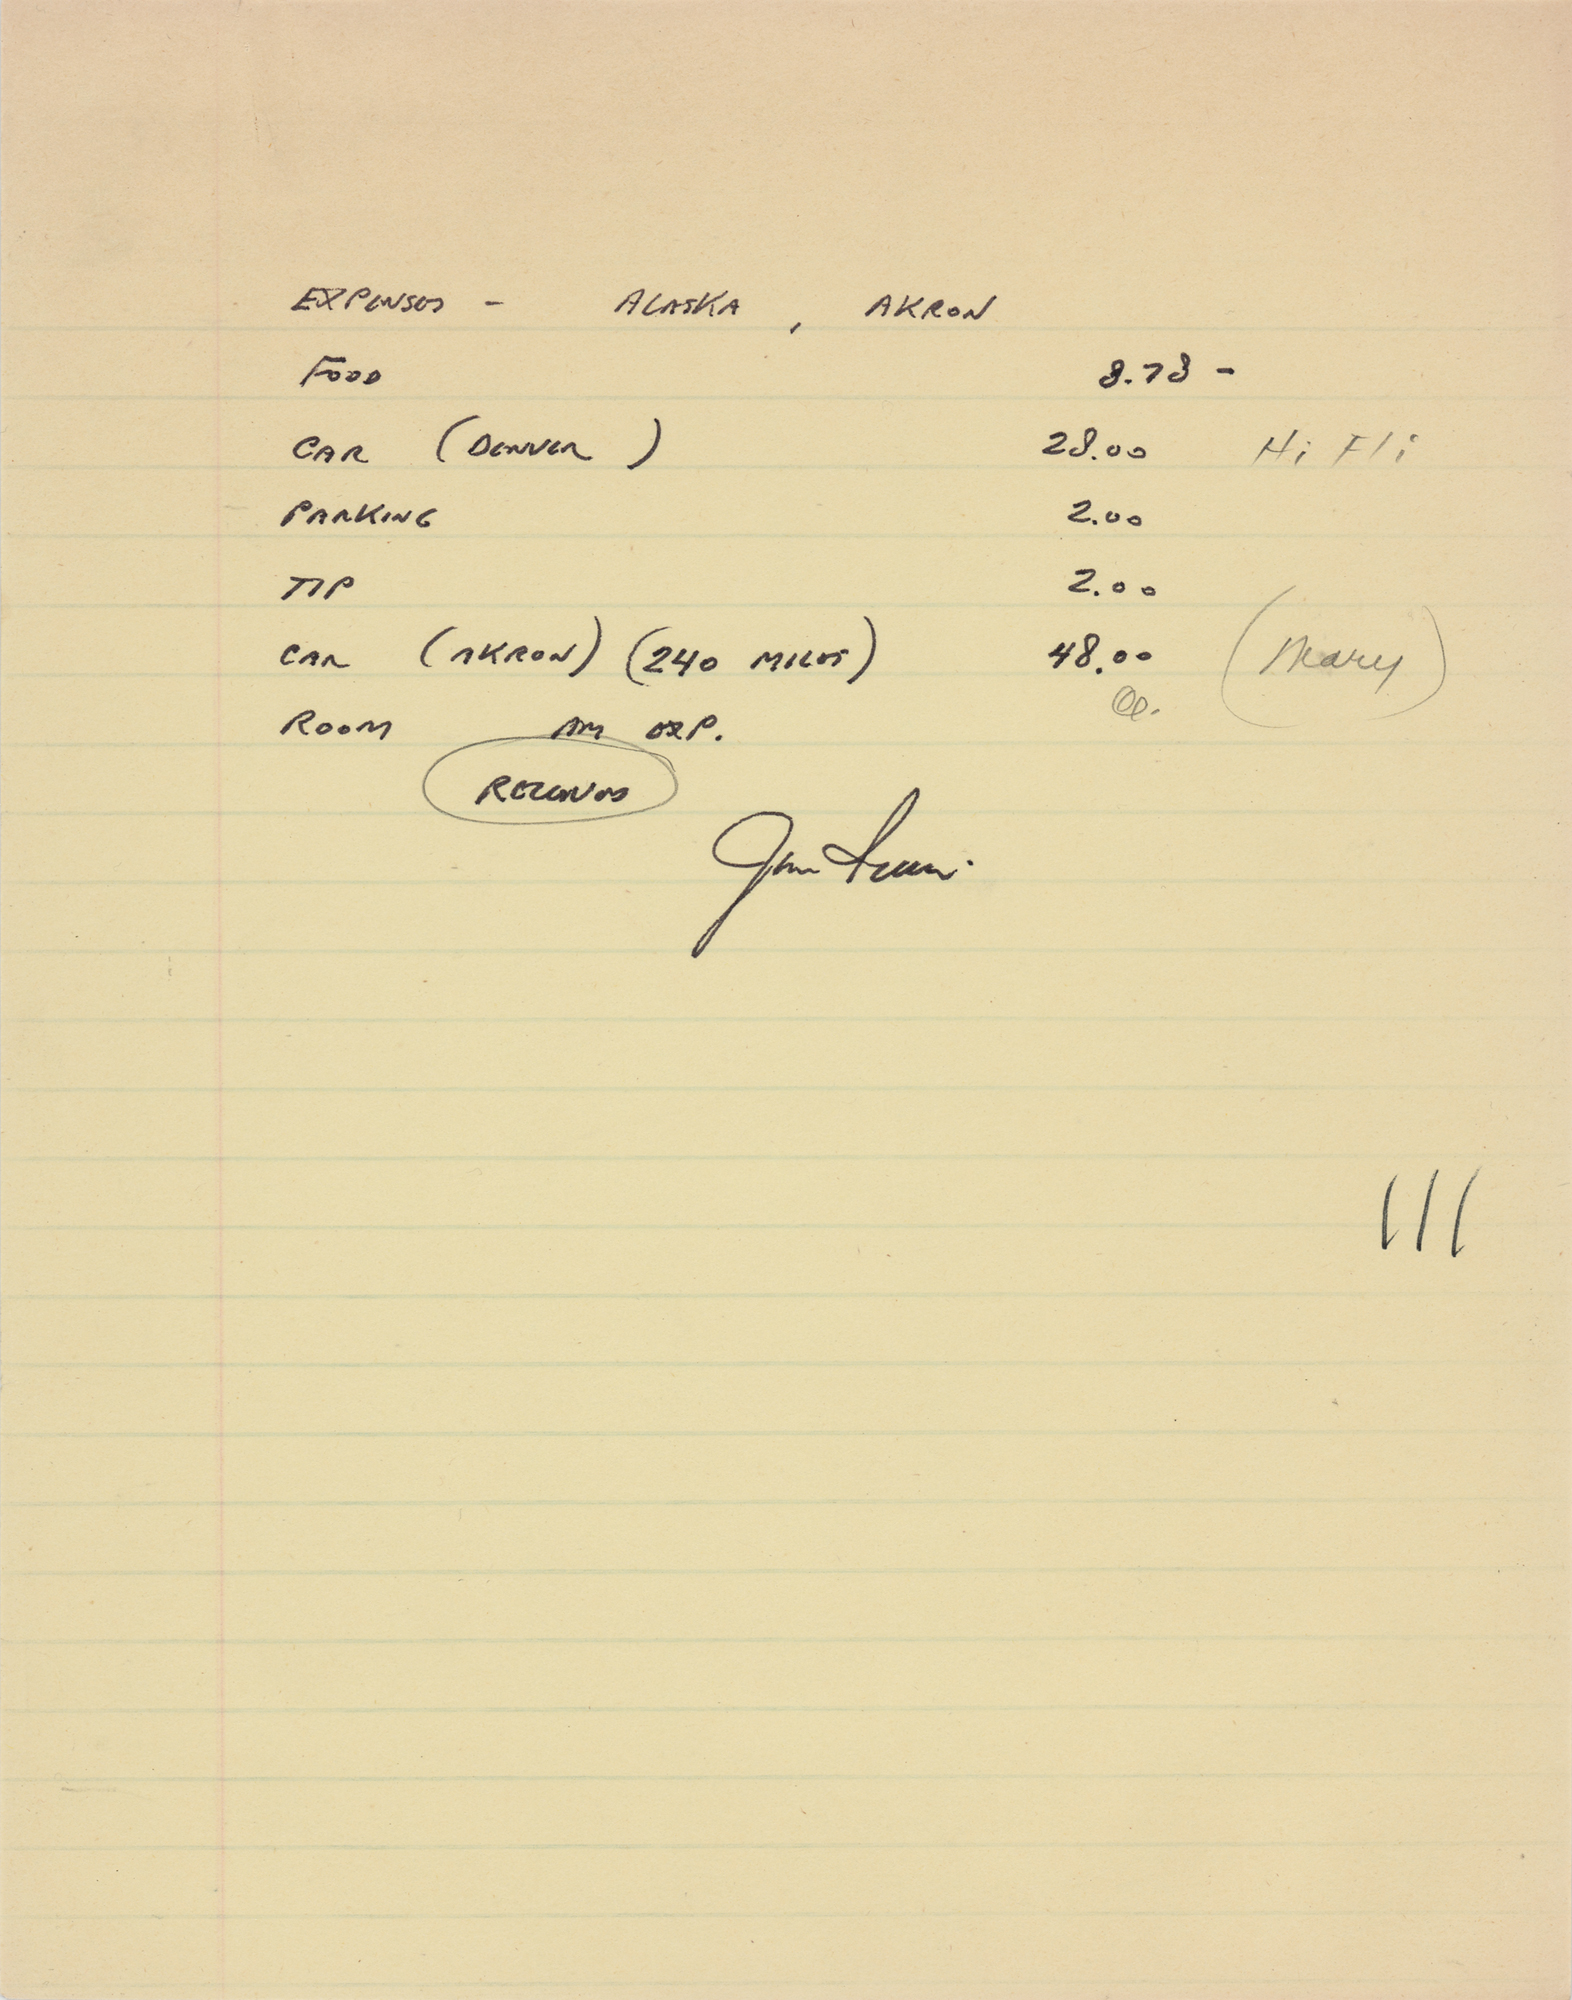 EXPENSES - ALASKA, AKRON
FOOD 8.78 -
CAR (DENVER) 28.00 Hi Fli
PARKING 2.00
TIP 2.00
CAR (AKRON) (240 MILES) 48.00 (Mary)
ROOM AM EXP.
Jim Irwin